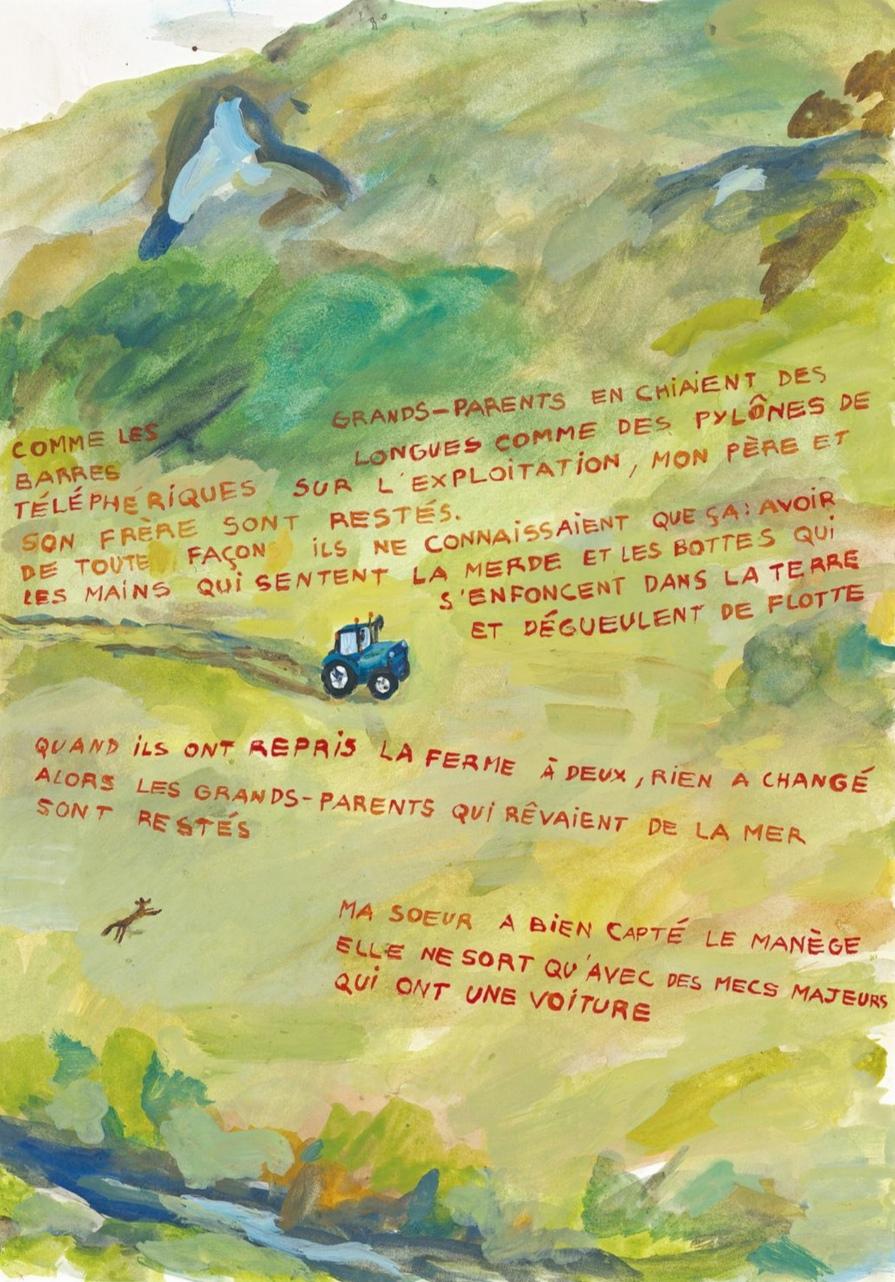 COMME LES GRANDS-PARENTS EN CHIAIENT DES
BARRES LONGUES COMME DES PYLÔNES DE
TÉLÉPHÉRIQUES SUR L'EXPLOITATION, MON PÈRE ET
SON FRÈRE SONT RESTÉS.
DE TOUTE FAÇON ILS NE CONNAISSAIENT QUE ÇA: AVOIR
LES MAINS QUI SENTENT LA MERDE ET LES BOTTES QUI
S'ENFONCENT DANS LA TERRE
ET DÉGUEULENT DE FLOTTE
QUAND ILS ONT REPRIS LA FERME À DEUX, RIEN A CHANGÉ
ALORS LES GRANDS-PARENTS QUI RÊVAIENT DE LA MER
SONT RESTÉS
MA SOEUR A BIEN CAPTÉ LE MANÈGE
ELLE NE SORT QU'AVEC DES MECS MAJEURS
QUI ONT UNE VOITURE